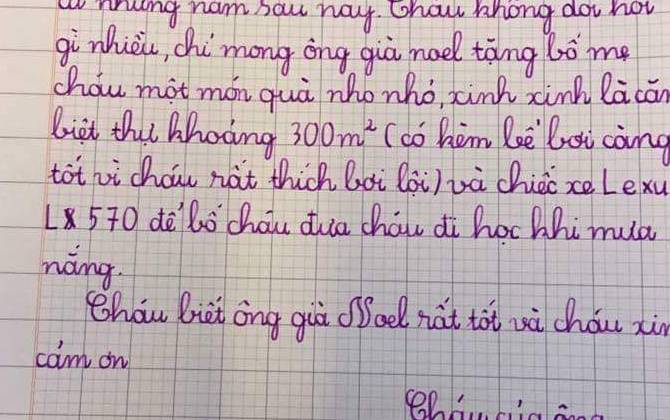 những năm sau này. Cháu không đòi hỏi
gì nhiều, chỉ mong ông già noel tặng bố mẹ
cháu một món quà nho nhỏ, xinh xinh là căn
biệt thự khoảng 300m² (có kèm bể bơi càng
tốt vì cháu rất thích bơi lội) và chiếc xe Lexu
LX 570 để bố cháu đưa cháu đi học khi mưa
nắng.
Cháu biết ông già Noel rất tốt và cháu xin
cảm ơn
Cháu của ông